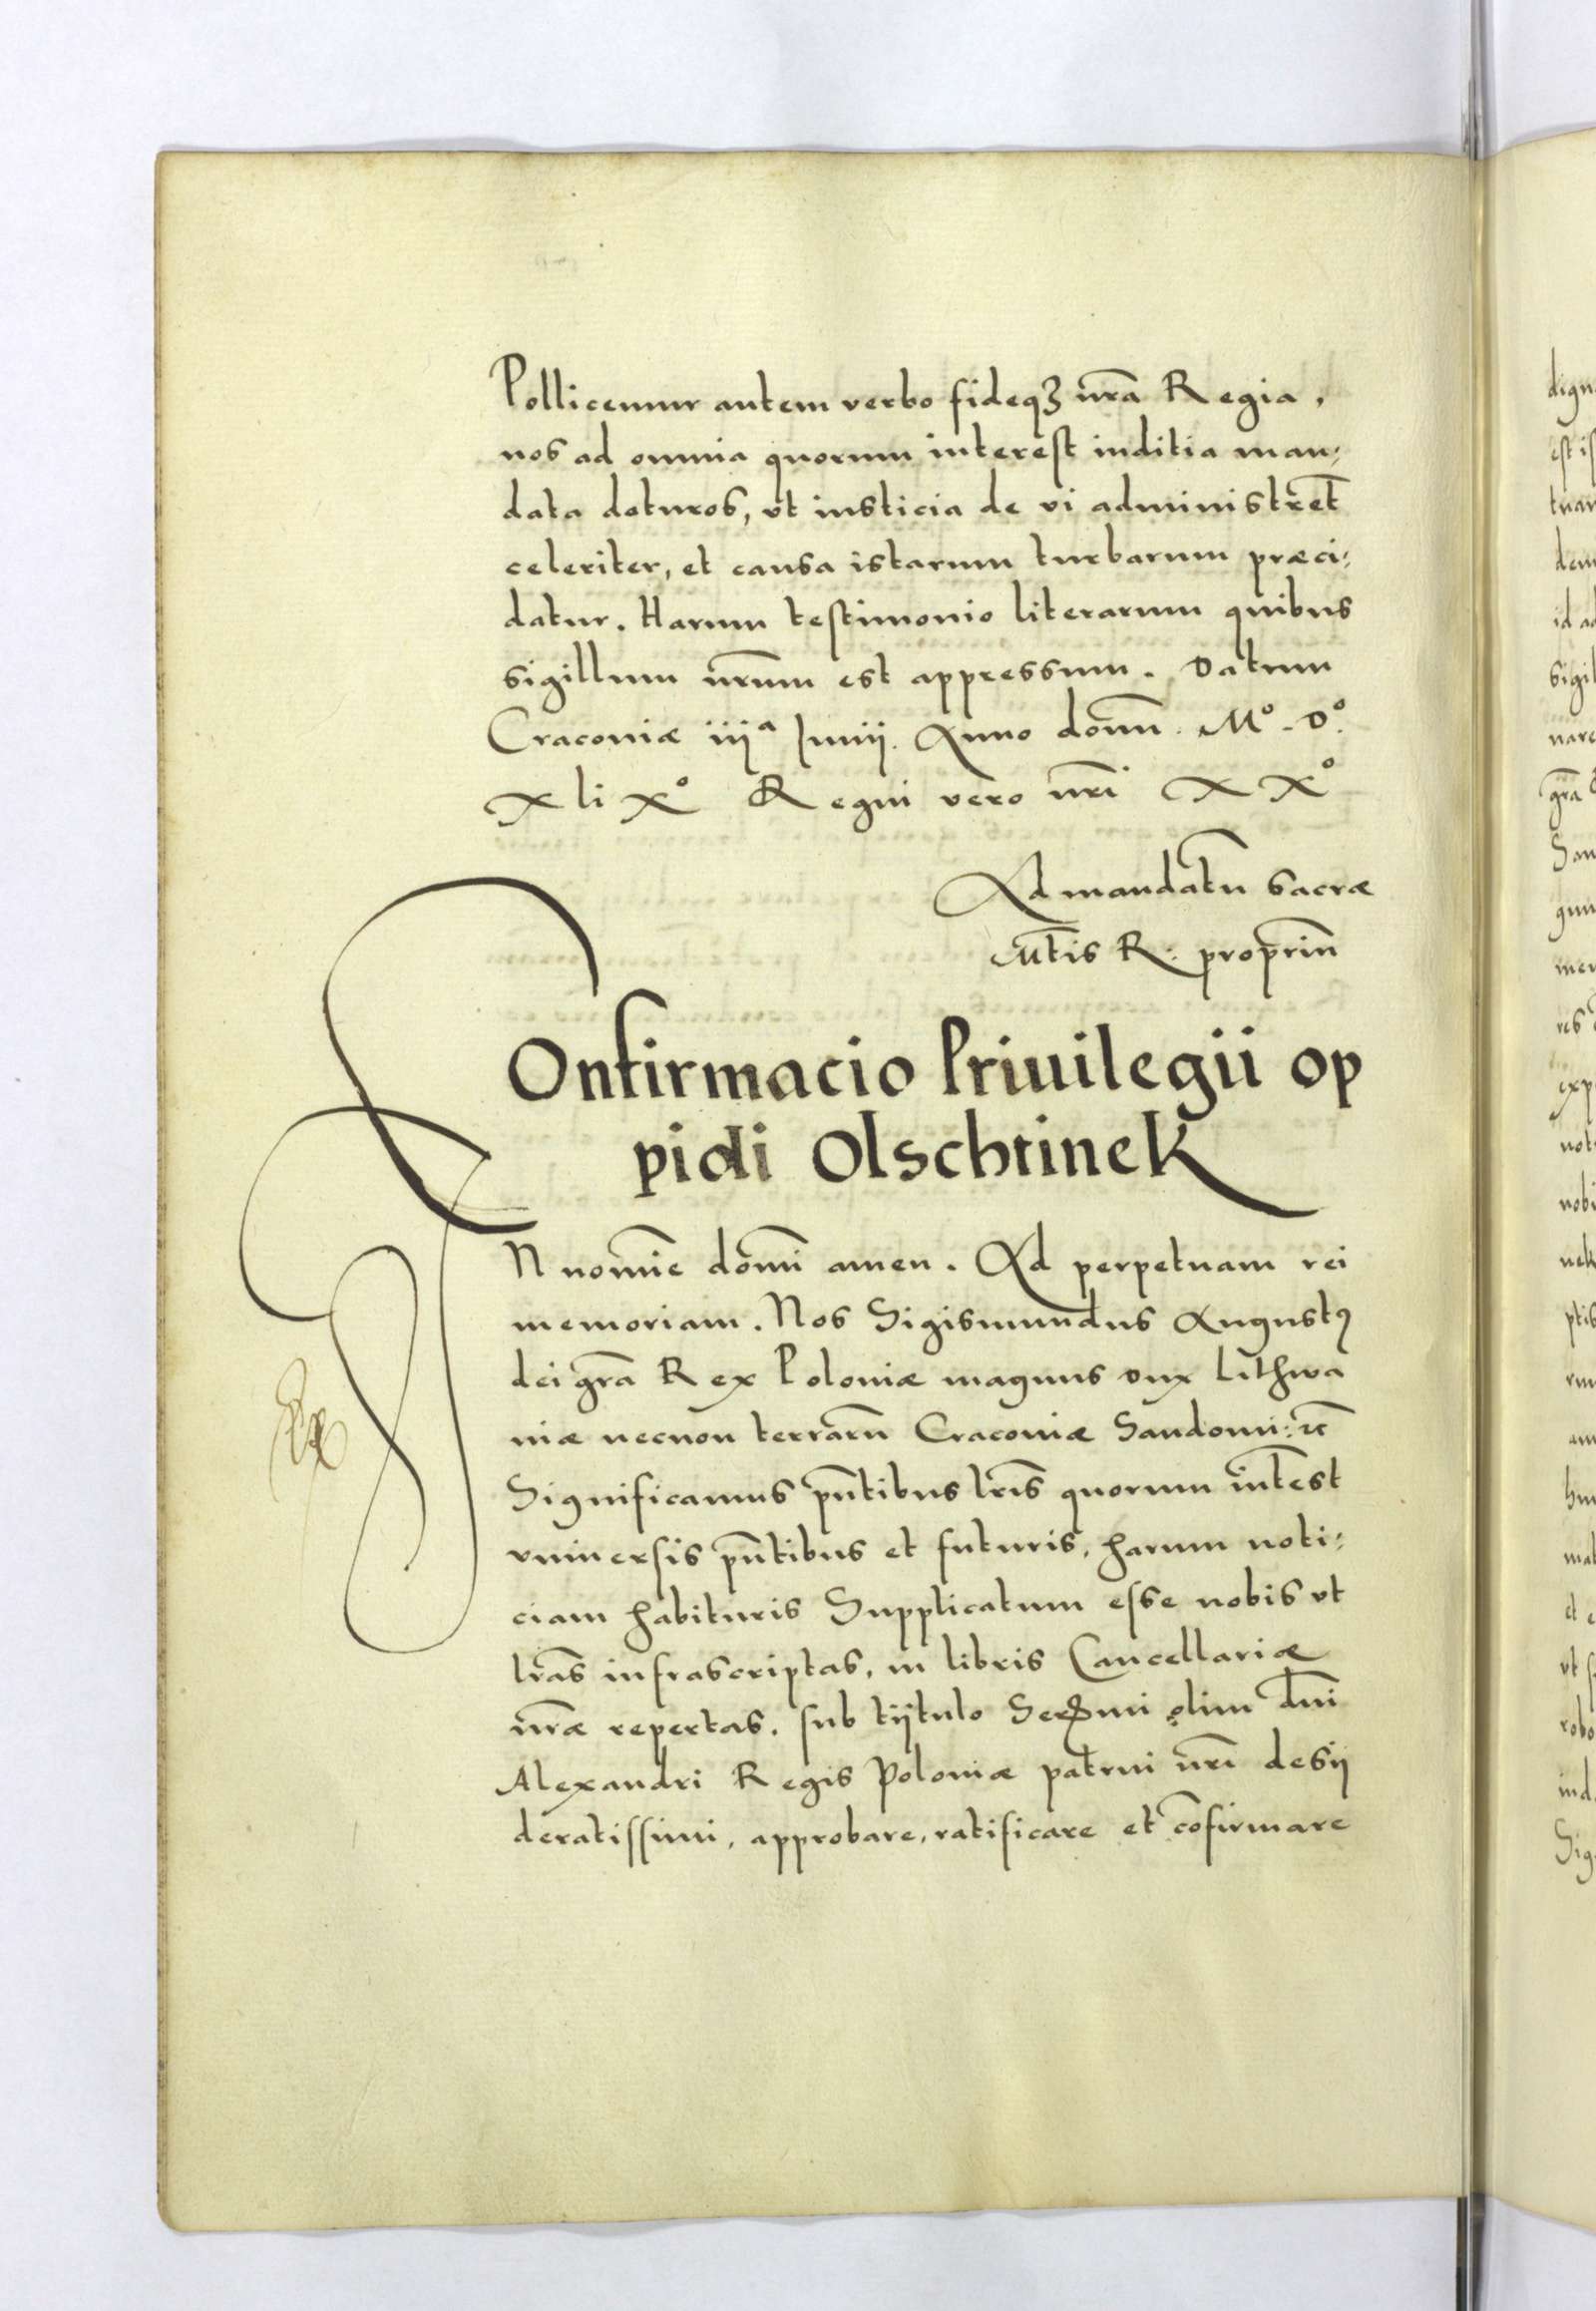 Pollicemur autem verbo fideqꝫ nr̃a Regia,
nos ad omnia quorum interest iuditia man:
data daturos, vt iusticia de vi administret̃
celeriter, et causa istarum turbarum præci:
datur. Harum testimonio literarum quibus
sigillum nr̃um est appressum. Datum
Cracoviæ iijª Junij. Anno domĩ. Mº. Dº.
XliXº Regni vero nr̃i XXº
Ad mandatũ Sacræ
Mt̃is R: propriũ
COnfirmacio Priuilegii op
pidi Olschtinek
IN nomĩe domĩ amen. Ad perpetuam rei
memoriam. Nos Sigismundus Augustꝰ
dei gr̃a Rex Poloniæ magnus Dux Lithwa
niæ necnon terrarũ Cracoviæ Sandomi: ꝛc̃
Significamus pñtibus lr̃is quorum int̃est
vniuersis pñtibus et futuris, harum noti:
ciam habituris Supplicatum esse nobis vt
lr̃as infrascriptas, in libris Cancellariæ
nr̃æ repertas. sub tijtulo Serꝫmi olim dñi
Alexandri Regis Poloniæ patrui nr̃i desij
deratissimi, approbare, ratificare et cõfirmare